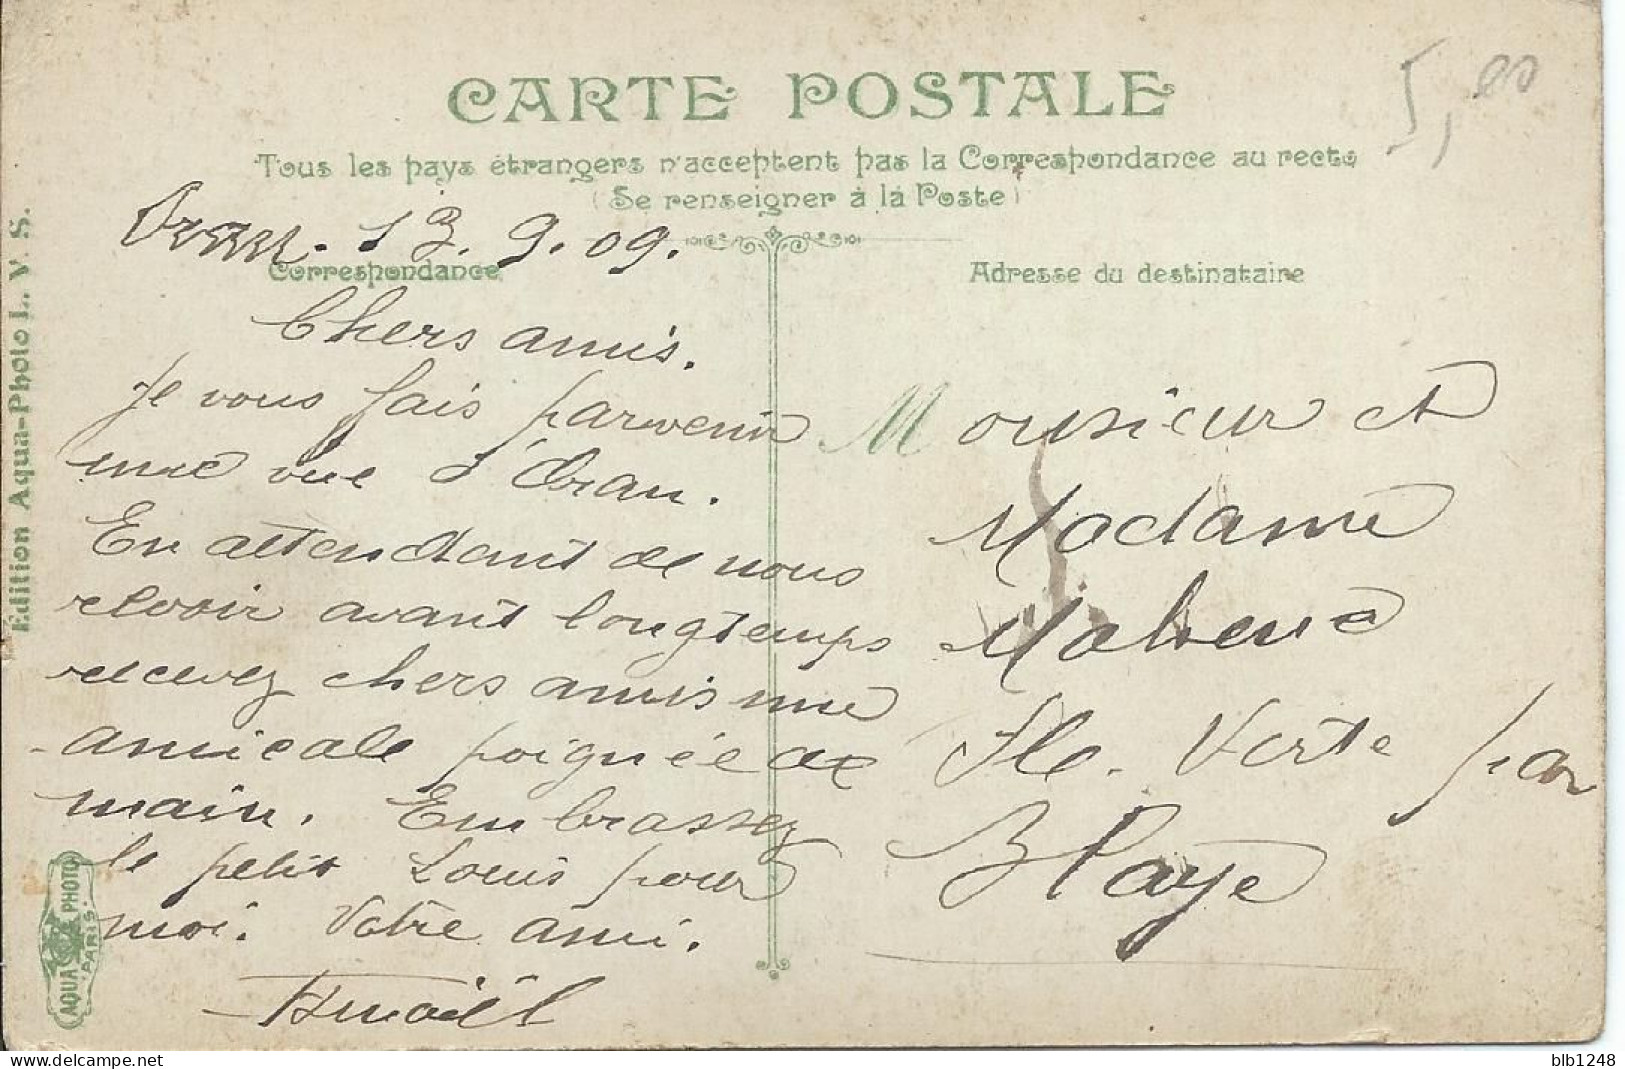 CARTE POSTALE
5,00
Tous les pays étrangers n'acceptent pas la Correspondance au recto
(Se renseigner à la Poste)
Oran. 13.9.09.
Correspondance
Chers amis.
Je vous fais parvenir
une vue d'Oran.
En attendant de nous
revoir avant longtemps
recevez chers amis une
amicale poignée de
main. Embrassez
le petit Louis pour
moi. Votre ami.
Adresse du destinataire
Monsieur et
Madame
Ile. Verte par
Blaye
Edition Aqua-Photo L. V. S.
AQUA PHOTO
PARIS.
blb1248